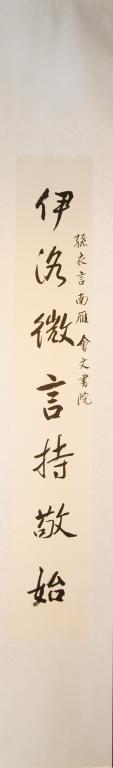 孫衣言南雁會文書院
伊洛微言持敬始